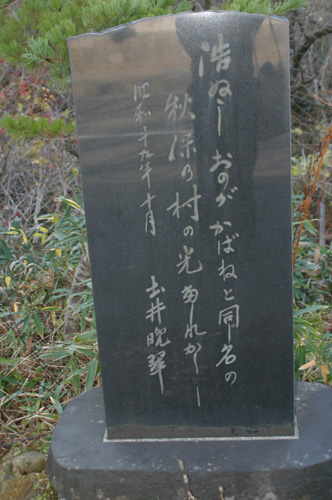 浩ぬし おのが かばねと同名の
秋保の村の光 なれかし
昭和十九年十月
土井晩翠